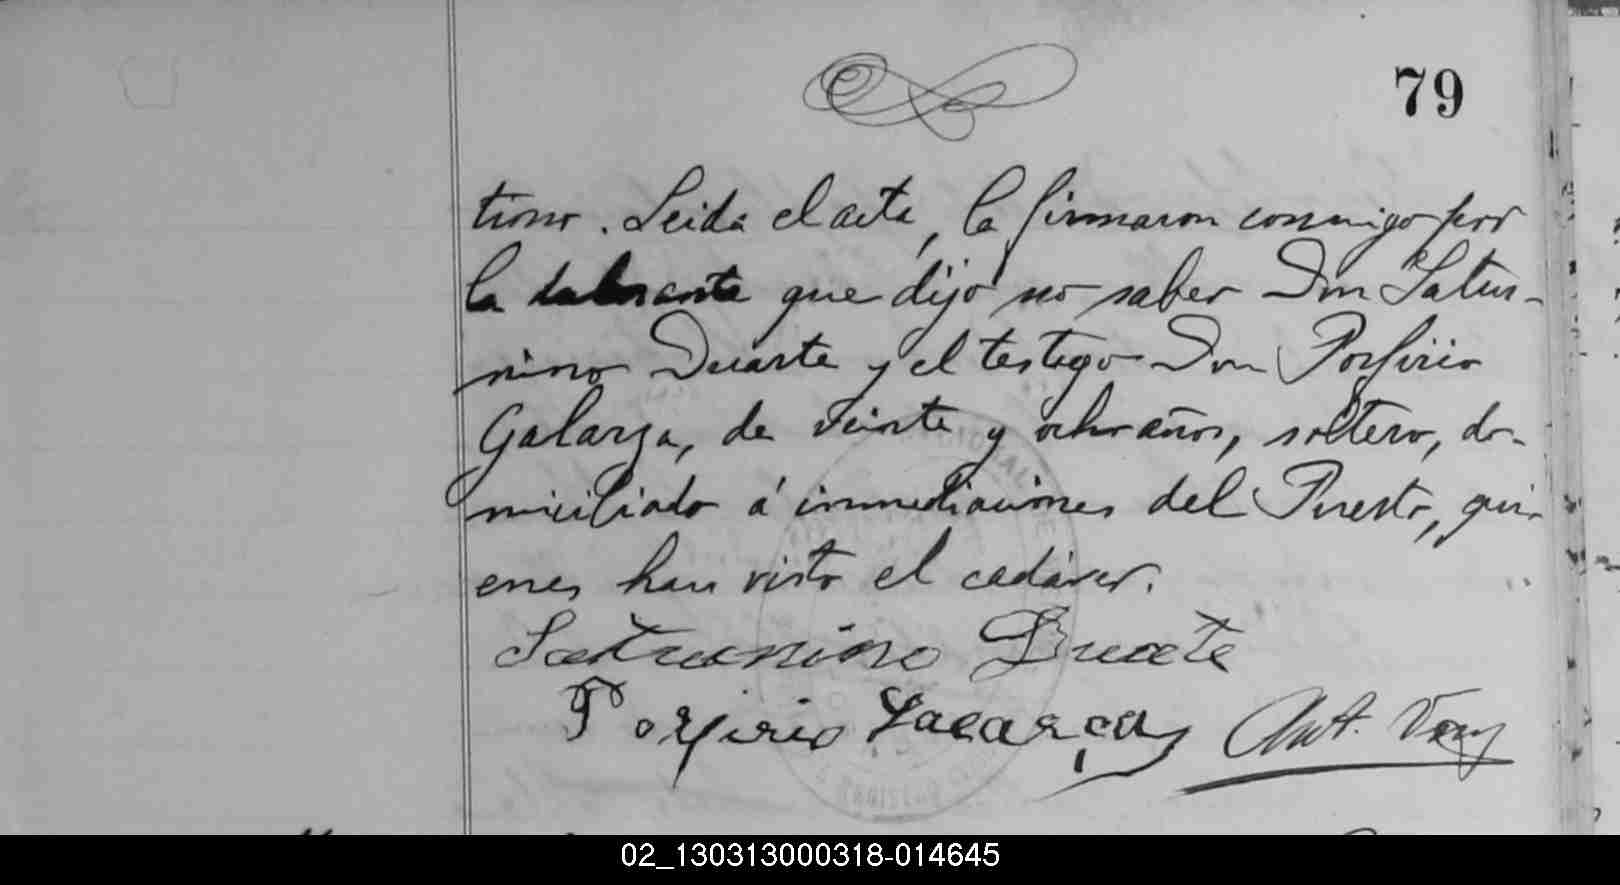 79
timo. Leida el acta, la firmaron conmigo por
la declarante que dijo no saber Don Satur-
nino Duarte y el testigo Don Porfirio
Galarza, de veinte y ocho años, soltero, do-
miciliado á inmediaciones del Puerto, qui-
enes han visto el cadáver.
Saturnino Duarte
Porfirio Galarza Ant.
02_130313000318-014645